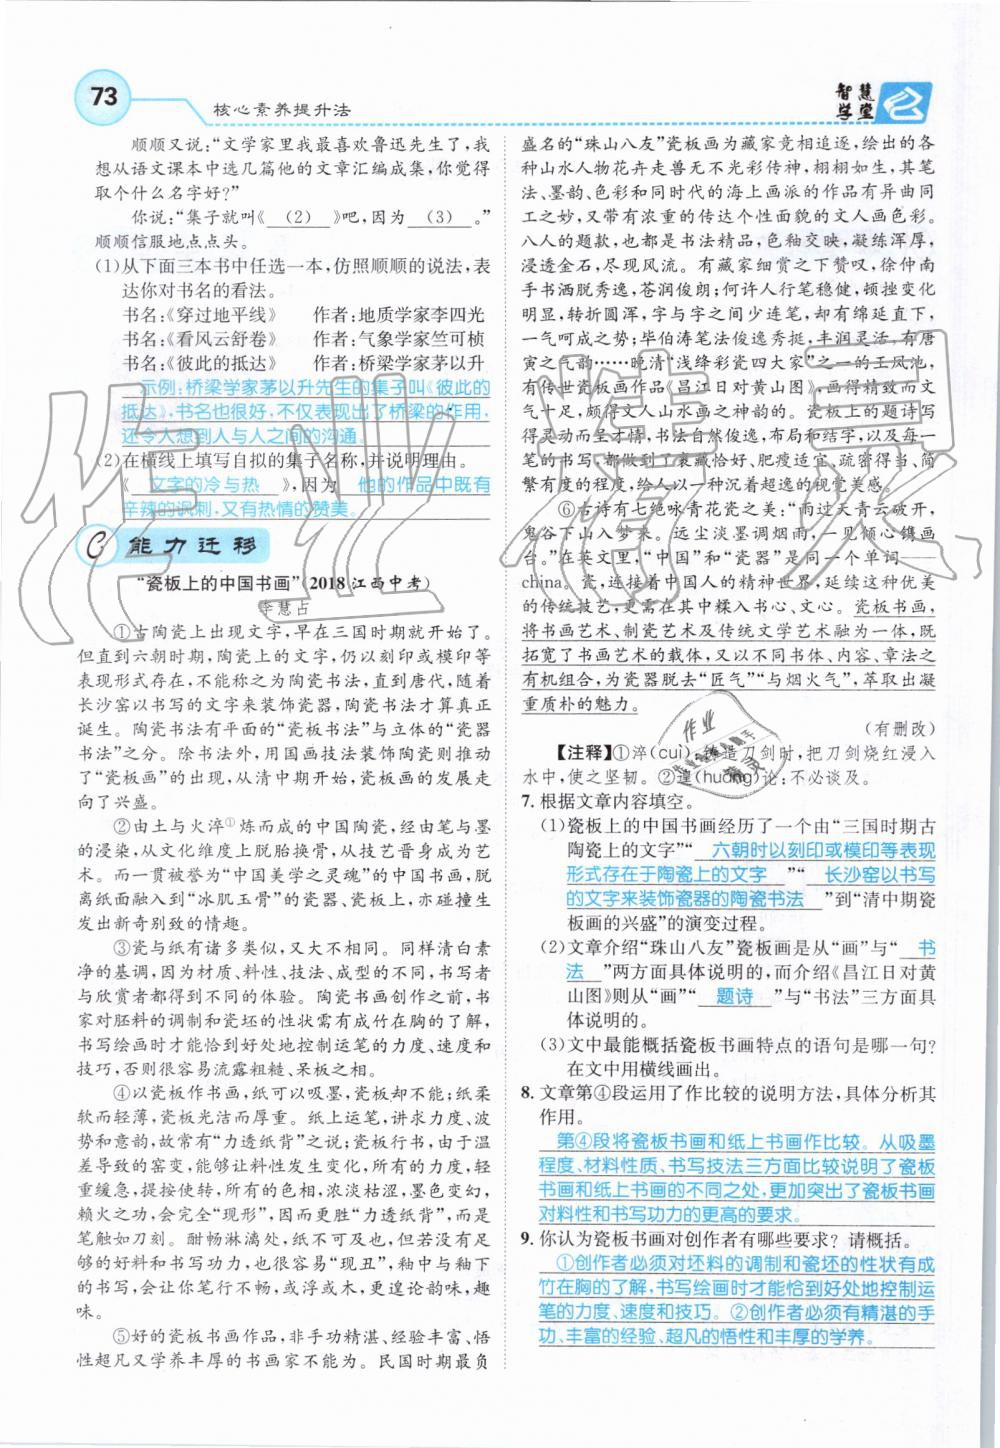 73
核心素养提升法
智慧
学堂
顺顺又说：“文学家里我最喜欢鲁迅先生了，我
想从语文课本中选几篇他的文章汇编成集，你觉得
取个什么名字好？”
你说：“集子就叫《　(2)　》吧，因为　(3)　。”
顺顺信服地点点头。
(1)从下面三本书中任选一本，仿照顺顺的说法，表
达你对书名的看法。
书名：《穿过地平线》　作者：地质学家李四光
书名：《看风云舒卷》　作者：气象学家竺可桢
书名：《彼此的抵达》　作者：桥梁学家茅以升
示例：桥梁学家茅以升先生的集子叫《彼此的
抵达》，书名也很好，不仅表现出了桥梁的作用，
还令人想到人与人之间的沟通。
(2)在横线上填写自拟的集子名称，并说明理由。
《　文字的冷与热　》，因为　他的作品中既有
辛辣的讽刺，又有热情的赞美。
C 能力迁移
“瓷板上的中国书画”(2018江西中考)
李慧占
①古陶瓷上出现文字，早在三国时期就开始了。
但直到六朝时期，陶瓷上的文字，仍以刻印或模印等
表现形式存在，不能称之为陶瓷书法，到唐代，随着
长沙窑以书写的文字来装饰瓷器，陶瓷书法才算真正
诞生。陶瓷书法有平面的“瓷板书法”与立体的“瓷器
书法”之分。除书法外，用国画技法装饰陶瓷则推动
了“瓷板画”的出现，从清中期开始，瓷板画的发展走
向了兴盛。
②由土与火淬①炼而成的中国陶瓷，经由笔与墨
的浸染，从文化维度上脱胎换骨，从技艺晋身成为艺
术。而一贯被誉为“中国美学之灵魂”的中国书画，脱
离纸面融入到“冰肌玉骨”的瓷器、瓷板上，亦碰撞生
发出新奇别致的情趣。
③瓷与纸有诸多类似，又大不相同。同样清白素
净的基调，因为材质、料性、技法、成型的不同，书写者
与欣赏者都得到不同的体验。陶瓷书画创作之前，书
家对胚料的调制和瓷坯的性状需有成竹在胸的了解，
书写绘画时才能恰到好处地控制运笔的力度、速度和
技巧，否则很容易流露粗糙、呆板之相。
④以瓷板作书画，纸可以吸墨，瓷板却不能；纸柔
软而轻薄，瓷板光洁而厚重。纸上运笔，讲求力度、波
势和意韵，故常有“力透纸背”之说；瓷板行书，由于温
差导致的窑变，能够让料性发生变化，所有的轻重，轻
重缓急，提按使转，所有的色相，浓淡枯涩，墨色变幻，
赖火之功，会完全“现形”，因此更胜“力透纸背”，而是
触如刀刻。酣畅淋漓处，纸不可及也，但若没有精湛
的书画和书写功力，也很容易“现丑”，釉中与釉下
的书写，会让你笔行不畅，或浮或木，更遑论韵味，趣
味。
⑤好的瓷板书画作品，非手功精湛、经验丰富、悟
性超凡又学养丰厚的书画家不能为。民国时期最负
盛名的“珠山八友”瓷板画为藏家竞相追逐，绘出的各
种山水人物花卉走兽无不光彩传神，栩栩如生，其笔
法、墨韵、色彩和同时代的海上画派的作品有异曲同
工之妙，又带有浓重的传达个性面貌的文人画色彩。
八人的题款，也都是书法精品，色釉交映，凝练浑厚，
浸透金石，尽现风流。有藏家细赏之下赞叹，徐仲南
手书洒脱秀逸，苍润俊朗；何许人行笔稳健，顿挫变化
明显，转折圆浑，字与字之间少连笔，却有
一气呵成之势；毕伯涛笔法俊逸秀挺，丰润灵活，有唐
寅之气韵……晚清“浅绛彩瓷四大家”之一的王凤池，
有传世瓷板画作品《昌江日对黄山图》，画得精致而文
气十足，颇得文人山水画之神韵的。瓷板上的题诗写
得灵动而生于才情，书法自然俊逸，布局和结字，以及
一笔的书写，都做到了衷藏恰好、肥瘦适宜、疏密得当、简
繁有度的程度，给人以一种沉着超逸的视觉美感。
⑥古诗有七绝咏青花瓷之美：“雨过天青云破开，
鬼谷下山入梦来。远尘淡墨调烟雨，一片冰心镌画
台。”在英文里，“中国”和“瓷器”是同一个单词——
china。瓷，连接着中国人的精神世界，延续这种优美
的传统技艺，更需在其中糅入书心、文心。瓷板书画，
将书画艺术、制瓷艺术及传统文学艺术融为一体，既
拓宽了书画艺术的载体，又以不同书体、内容、章法之
有机组合，为瓷器脱去“匠气”“与烟火气”，萃取出凝
重质朴的魅力。
(有删改)
【注释】①淬(cuì)：铸造刀剑时，把刀剑烧红浸入
水中，使之坚韧。②遑(huáng)论：不必谈及。
7. 根据文章内容填空。
(1)瓷板上的中国书画经历了一个由“三国时期古
陶瓷上的文字”“　六朝时以刻印或模印等表现
形式存在于陶瓷上的文字　”“　长沙窑以书写
的文字来装饰瓷器的陶瓷书法　”到“清中期瓷
板画的兴盛”的演变过程。
(2)文章介绍“珠山八友”瓷板画是从“画”与“　书
法　”两方面具体说明的，而介绍《昌江日对黄
山图》则从“画”“　题诗　”与“书法”三方面具
体说明的。
(3)文中最能概括瓷板书画特点的语句是哪一句？
在文中用横线画出。
8. 文章第④段运用了作比较的说明方法，具体分析其
作用。
第④段将瓷板书画和纸上书画作比较。从吸墨
程度、材料性质、书写技法三方面比较说明了瓷板
书画和纸上书画的不同之处，更加突出了瓷板书画
对料性和书写功力的更高的要求。
9. 你认为瓷板书画对创作者有哪些要求？请概括。
①创作者必须对坯料的调制和瓷坯的性状有成
竹在胸的了解，书写绘画时才能恰到好处地控制运
笔的力度、速度和技巧。②创作者必须有精湛的手
功、丰富的经验、超凡的悟性和丰厚的学养。